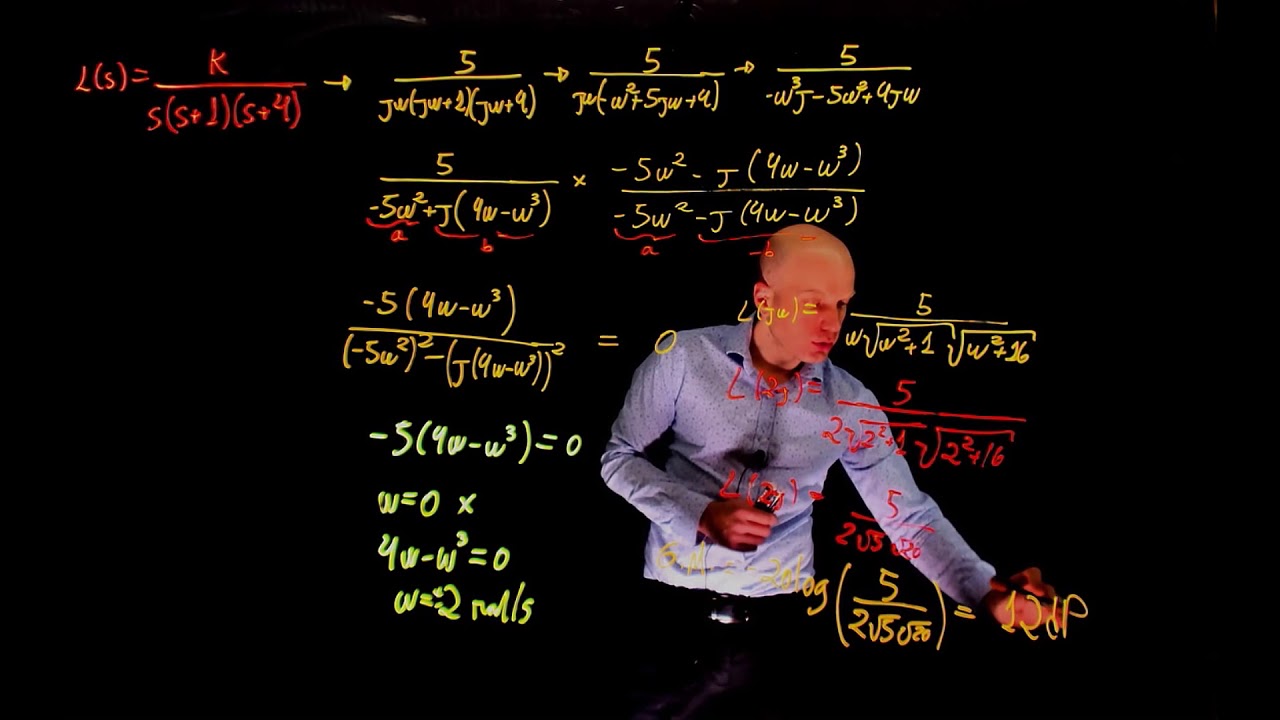 L(s) = K / s(s+1)(s+4) → 5 / jw(jw+1)(jw+4) → 5 / jw(-w²+5jw+4) → 5 / -w³j-5w²+4jw
5 / -5w²+j(4w-w³) × -5w²-j(4w-w³) / -5w²-j(4w-w³)
a b a -b
-5(4w-w³) / (-5w²)²-(j(4w-w³))² = 0
L(jw) = 5 / w√w²+1 √w²+16
L(2j) = 5 / 2√2²+1 √2²+16
-5(4w-w³)=0
w=0 x
L(2j) = 5 / 2√5√20
4w-w³=0
w=±2 rad/s
G.M = -20log(5 / 2√5√20) = 12d